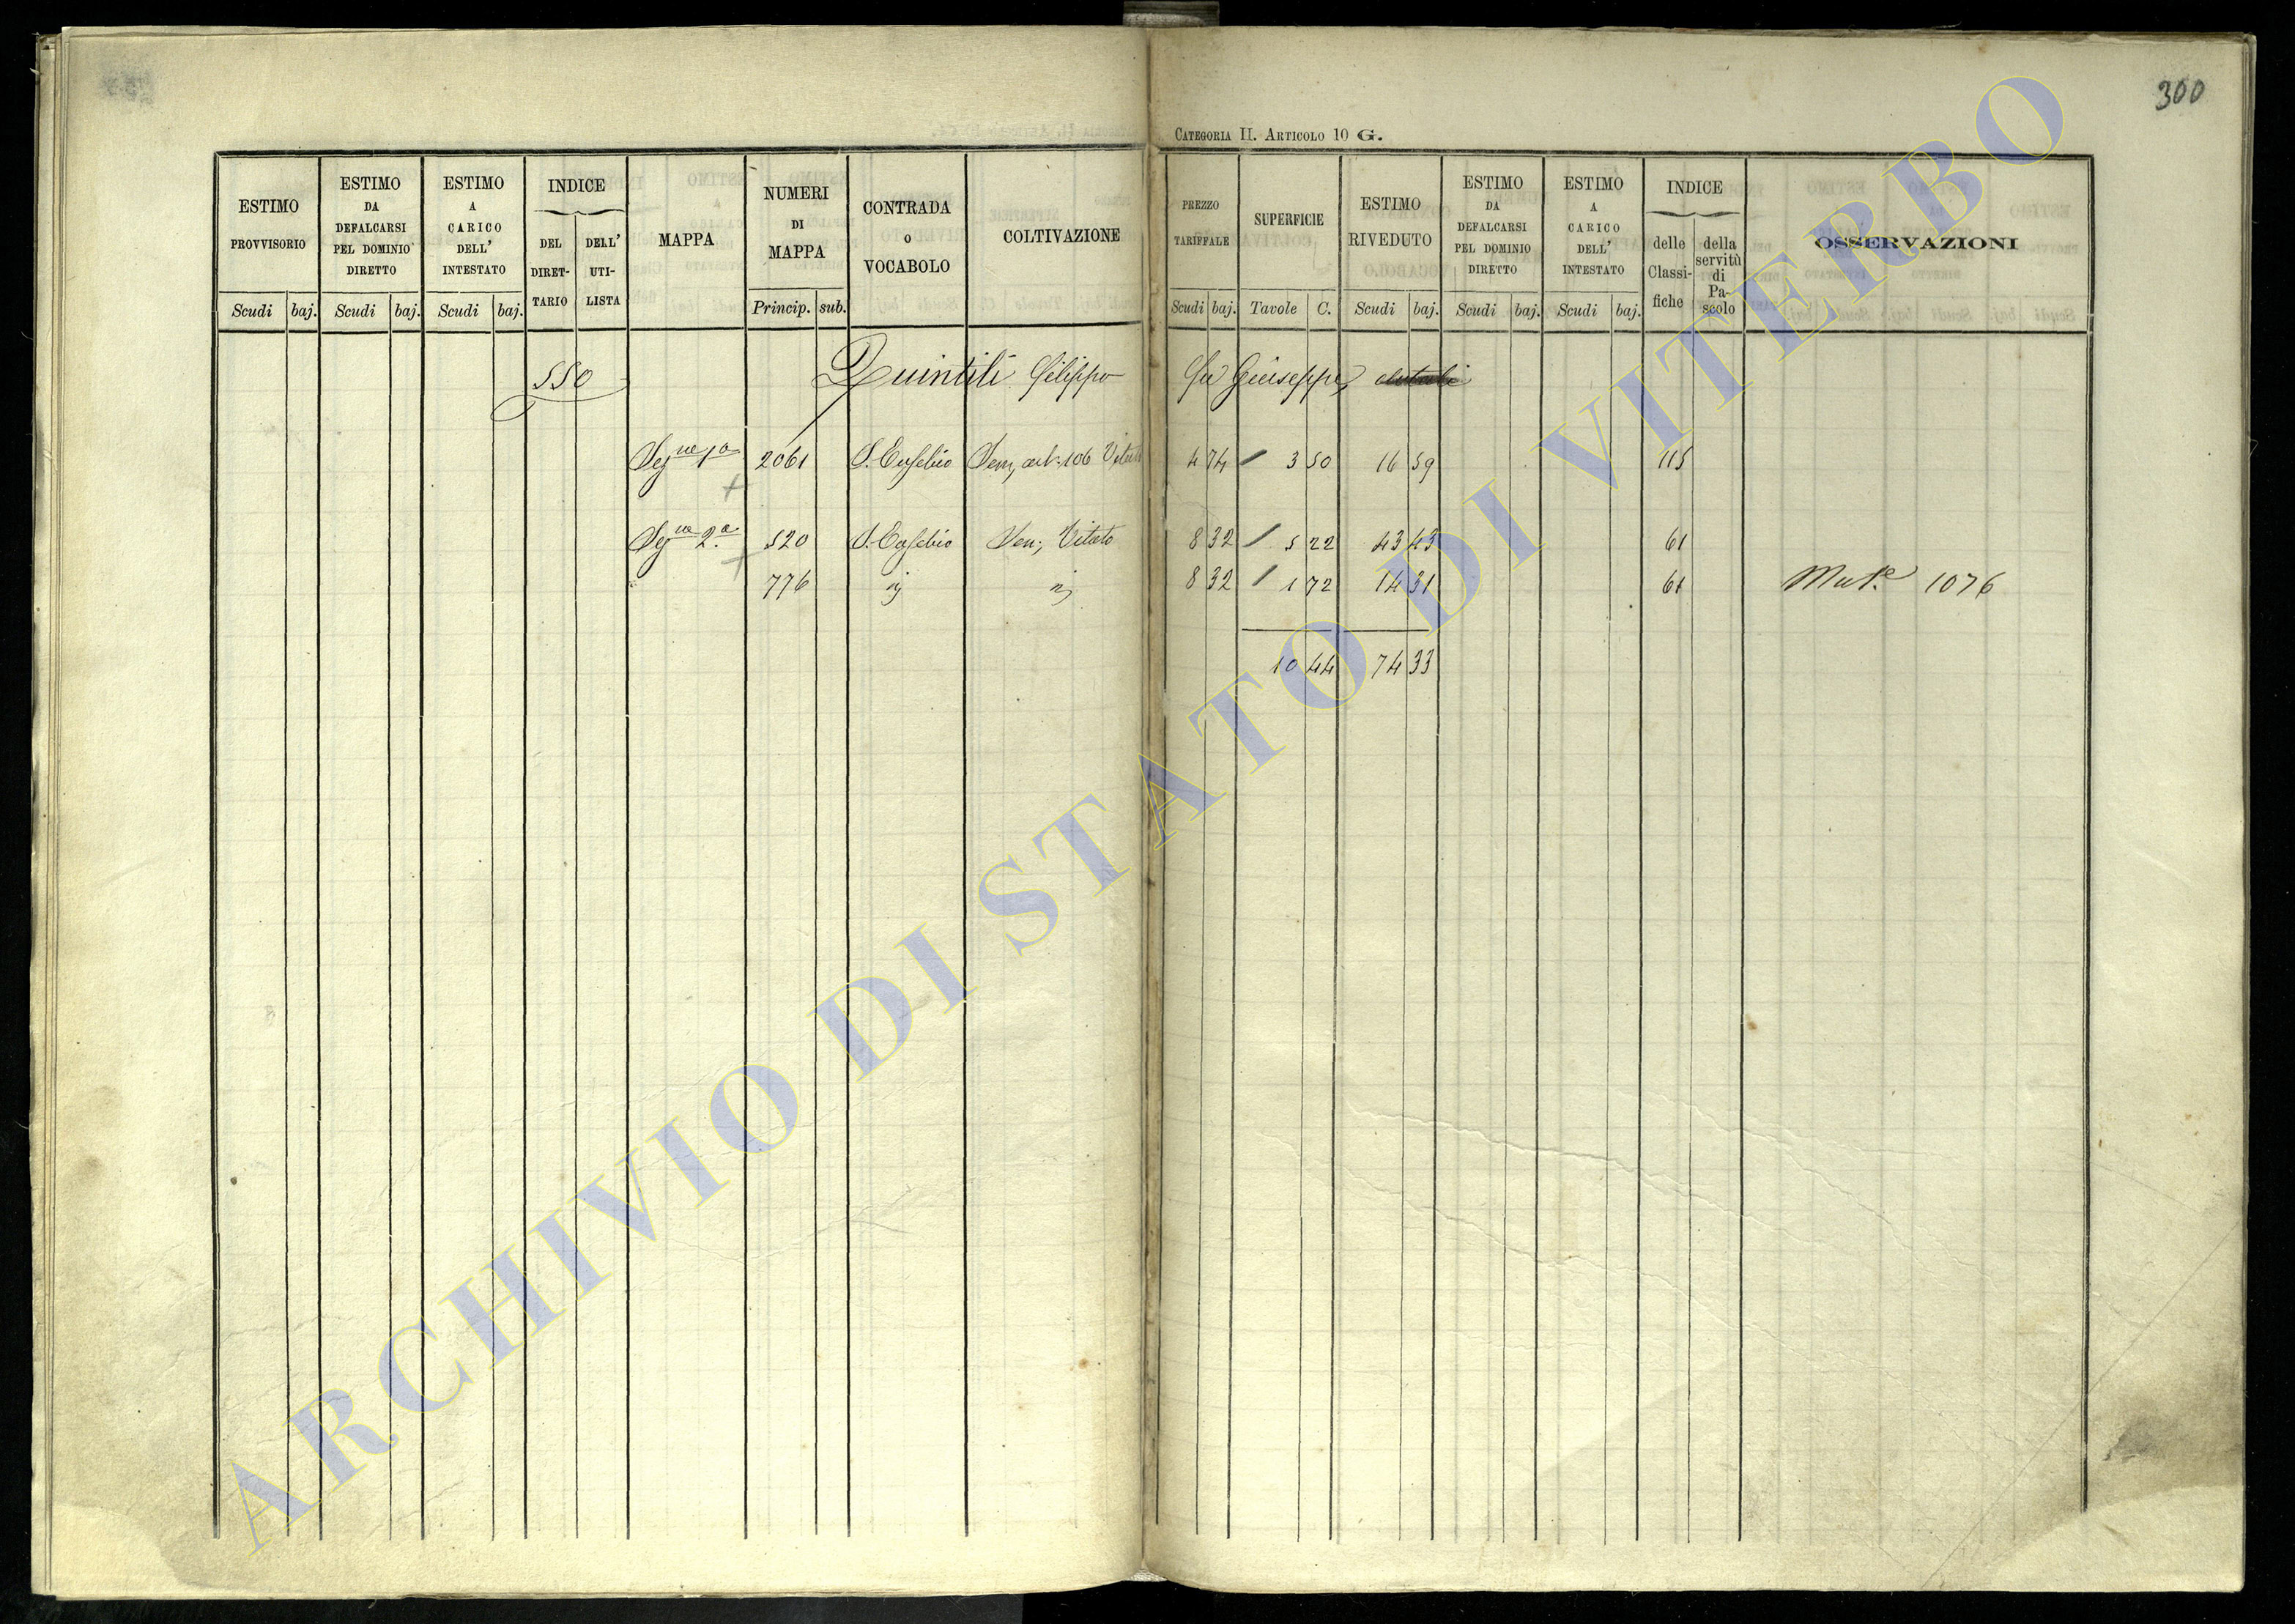 300
CATEGORIA II. ARTICOLO 10 G.
ESTIMO PROVVISORIO
Scudi baj.
ESTIMO DA DEFALCARSI PEL DOMINIO DIRETTO
Scudi baj.
ESTIMO A CARICO DELL' INTESTATO
Scudi baj.
INDICE
DEL DIRETTARIO
DELL' UTILISTA
MAPPA
NUMERI DI MAPPA
Princip. sub.
CONTRADA O VOCABOLO
COLTIVAZIONE
PREZZO TARIFFALE
Scudi baj.
SUPERFICIE
Tavole C.
ESTIMO RIVEDUTO
Scudi baj.
ESTIMO DA DEFALCARSI PEL DOMINIO DIRETTO
Scudi baj.
ESTIMO A CARICO DELL' INTESTATO
Scudi baj.
INDICE
delle Classifiche
della servitù di Pascolo
OSSERVAZIONI
550 Quintili Filippo fu Giuseppe
Segne 1a 2061 S. Eusebio Sem, art. 106 Vitato 4 74 3 50 16 59 115
Segne 2a 520 S. Eusebio Sem; Vitato 8 32 5 22 43 43 61
" 776 8 32 1 72 14 31 61 Mut.e 1076
10 44 74 33
ARCHIVIO DI STATO DI VITERBO